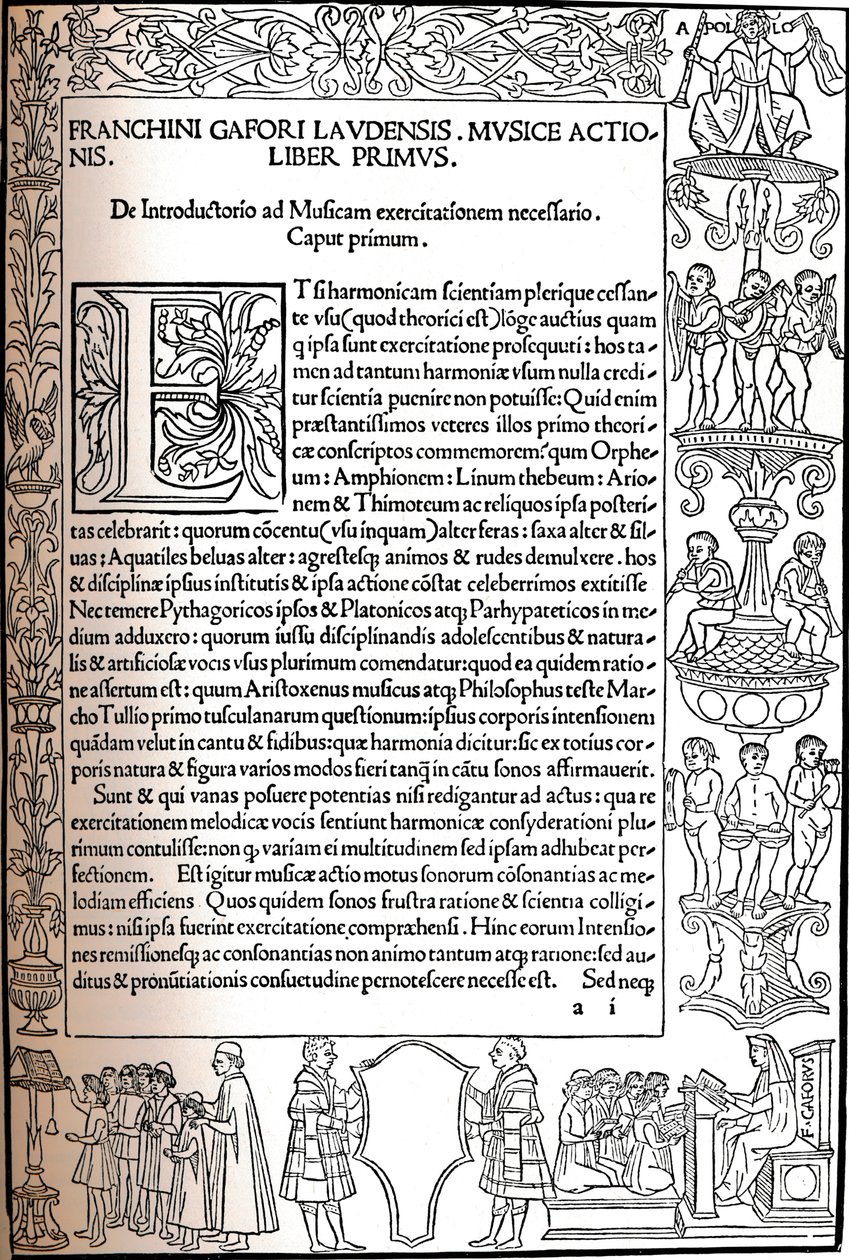 A POL LO
FRANCHINI GAFORI LAVDENSIS . MVSICE ACTIO-
NIS. LIBER PRIMVS .
De Introductorio ad Muſicam exercitationem neceſſario .
Caput primum .
ET ſi harmonicam ſcientiam plerique ceſſan-
te vſu(quod theorici eſt)lōge auctius quam
q ipſa ſunt exercitatione proſequuti : hos ta-
men ad tantum harmoniæ vſum nulla credi-
tur ſcientia ꝑuenire non potuiſſe: Quid enim
præſtantiſſimos veteres illos primo theori-
cæ conſcriptos commemorem? qum Orphe-
um : Amphionem : Linum thebeum : Ario-
nem & Thimoteum ac reliquos ipſa poſteri-
tas celebrarit : quorum cōcentu(vſu inquam)alter feras : ſaxa alter & ſil-
uas : Aquatiles beluas alter : agreſteſqꝫ animos & rudes demulxere . hos
& diſciplinæ ipſius inſtitutis & ipſa actione cōſtat celeberrimos extitiſſe
Nec temere Pythagoricos ipſos & Platonicos atqꝫ Parhypateticos in me-
dium adduxero : quorum iuſſu diſciplinandis adoleſcentibus & natura-
lis & artificioſæ vocis vſus plurimum comendatur:quod ea quidem ratio-
ne aſſertum eſt : quum Ariſtoxenus muſicus atqꝫ Philoſophus teſte Mar-
cho Tullio primo tuſculanarum queſtionum:ipſius corporis intenſionem
quādam velut in cantu & fidibus:quæ harmonia dicitur:ſic ex totius cor-
poris natura & figura varios modos fieri tanq̄ in cātu ſonos affirmauerit.
Sunt & qui vanas poſuere potentias niſi redigantur ad actus : qua re
exercitationem melodicæ vocis ſentiunt harmonicæ conſyderationi plu-
rimum contuliſſe:non ꝙ variam ei multitudinem ſed ipſam adhibeat per-
fectionem . Eſt igitur muſicæ actio motus ſonorum cōſonantias ac me-
lodiam efficiens Quos quidem ſonos fruſtra ratione & ſcientia colligi-
mus : niſi ipſa fuerint exercitatione compræhenſi . Hinc eorum Intenſio-
nes remiſſioneſqꝫ ac conſonantias non animo tantum atqꝫ ratione:ſed au-
ditus & pronūtiationis conſuetudine pernoteſcere neceſſe eſt. Sed neqꝫ
a i
F. GAFORVS